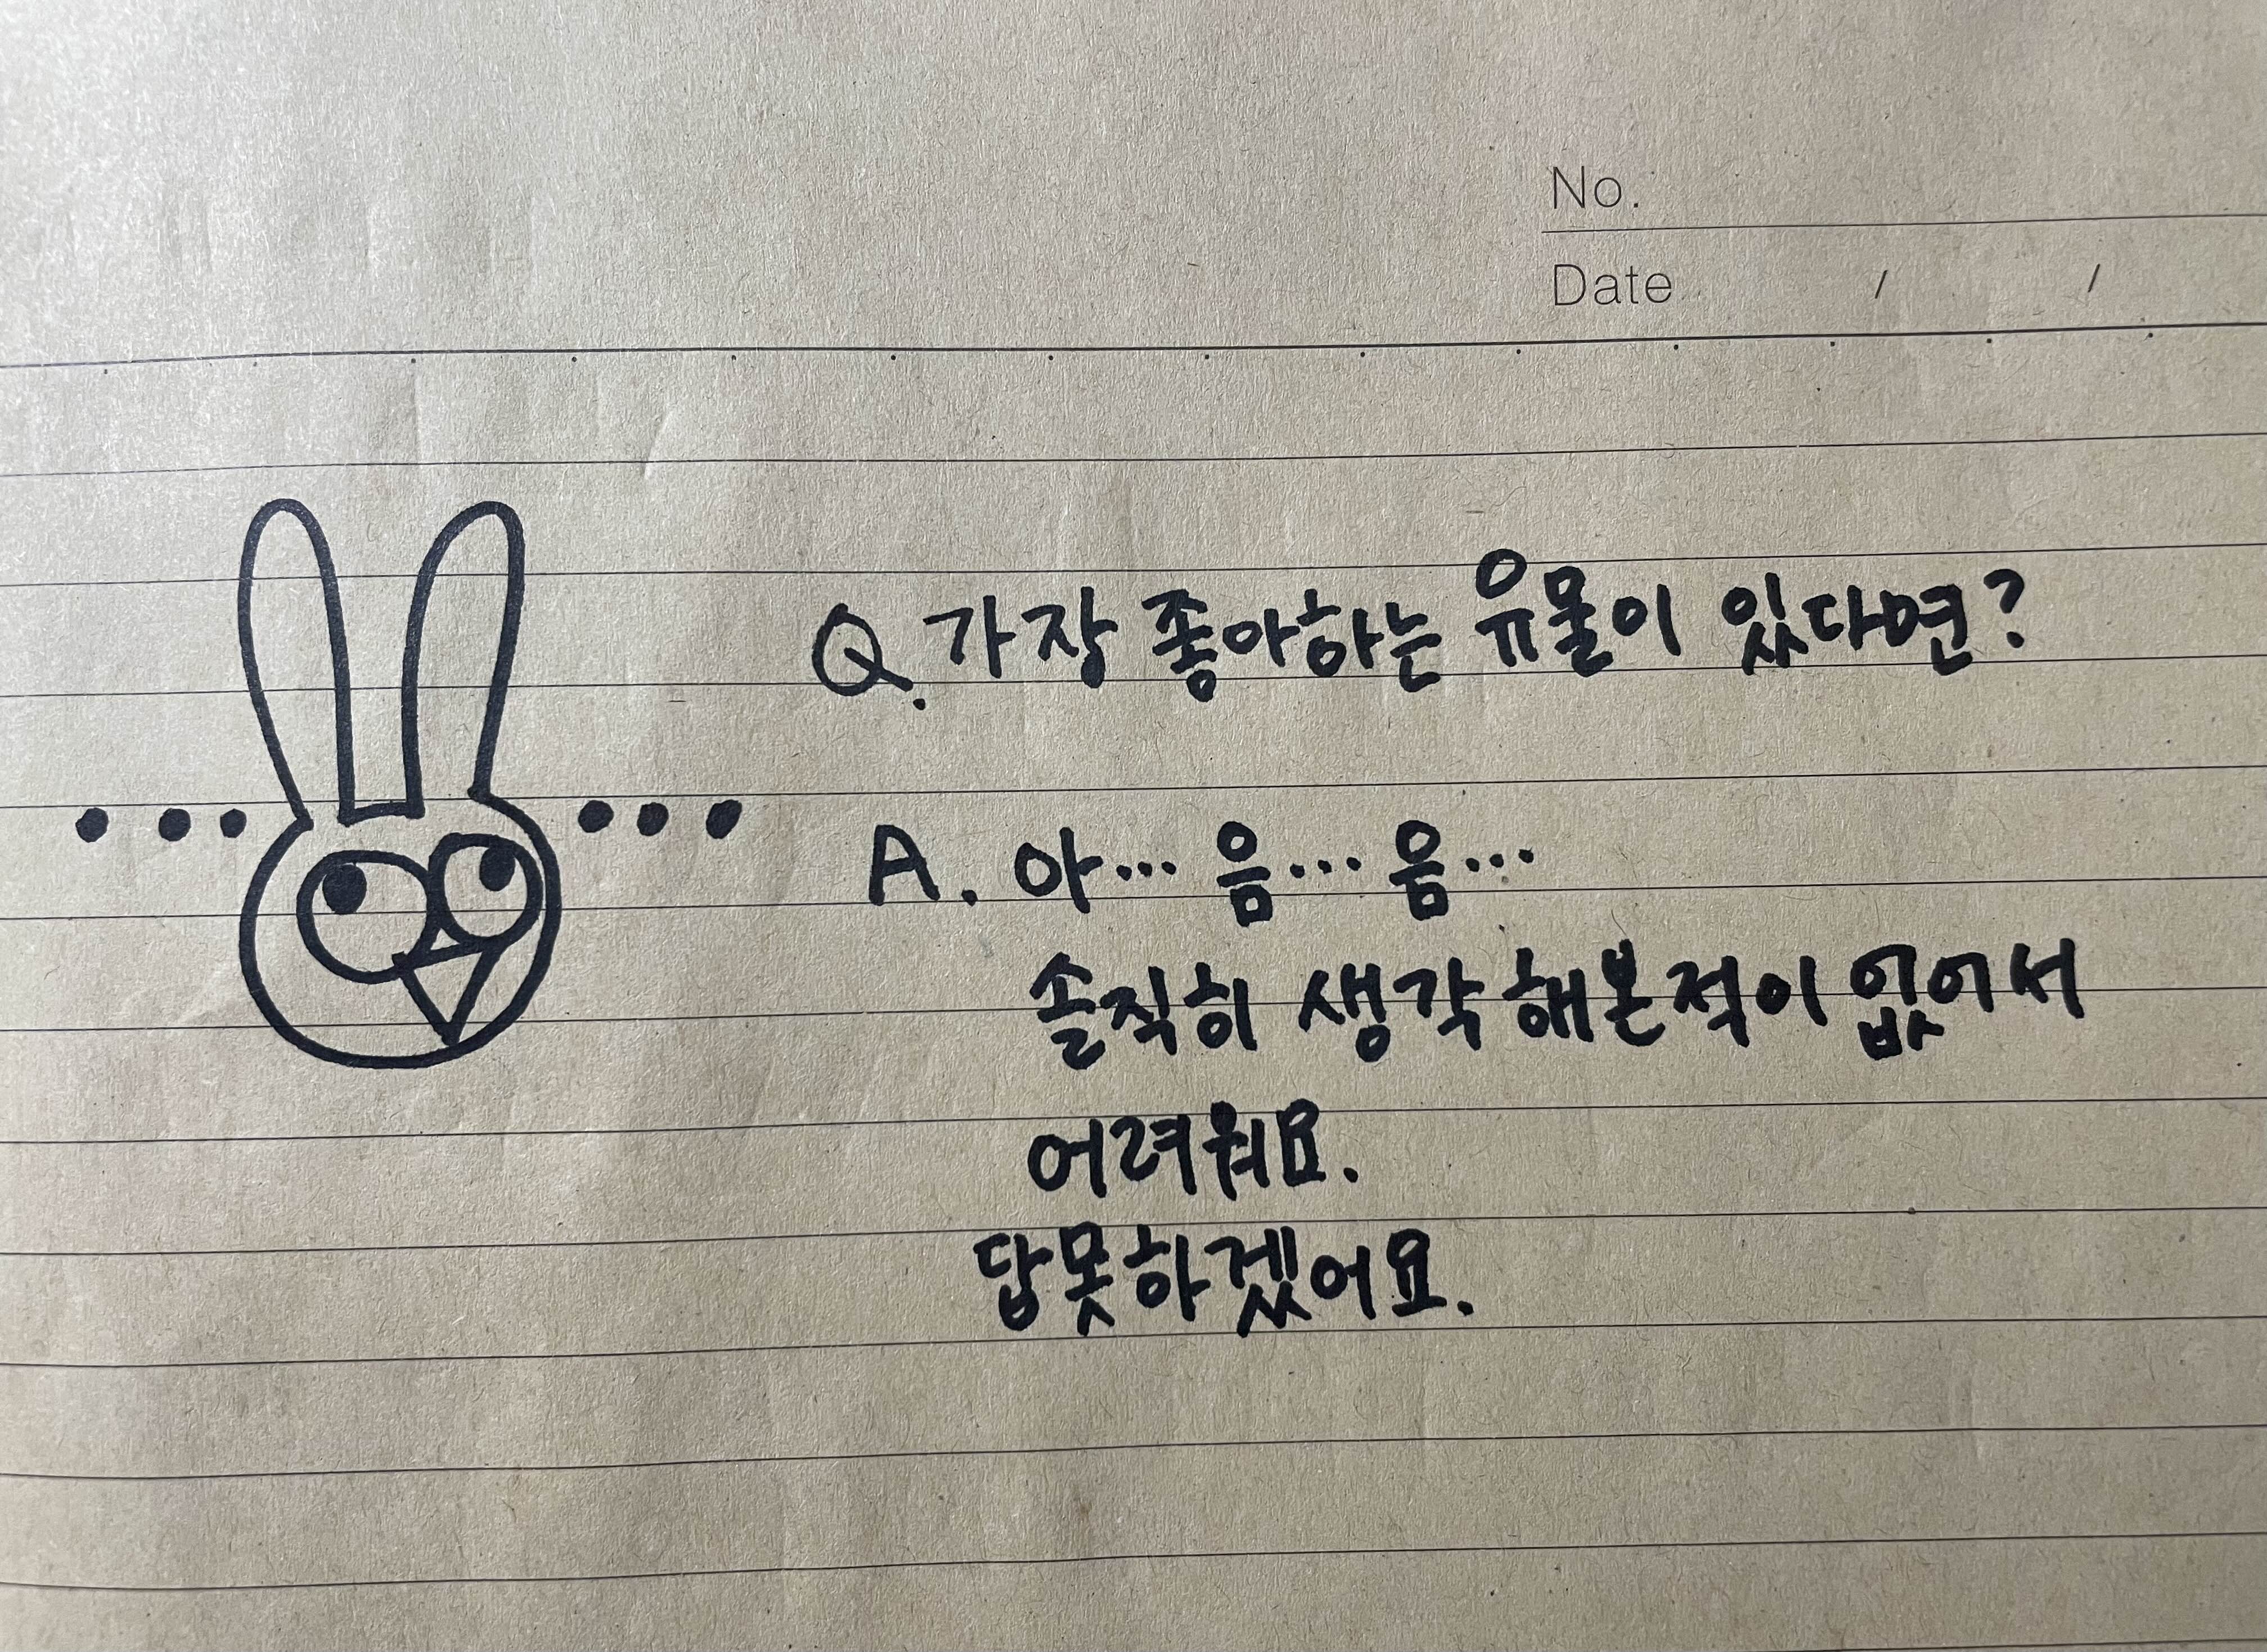 No.
Date / /
Q. 가장 좋아하는 유물이 있다면?
A. 아... 음... 음...
솔직히 생각 해본적이 없어서
어려워요.
답못하겠어요.